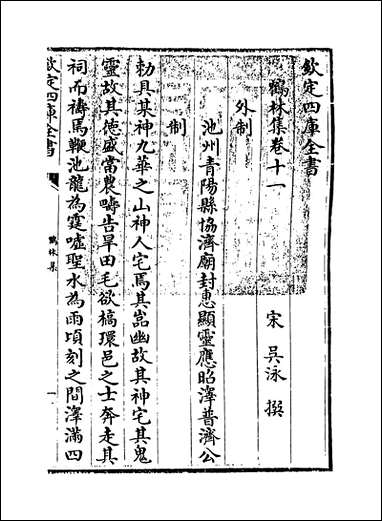 欽定四庫全書
鶴林集卷十一
宋 吳泳 撰
外制
池州青陽縣協濟廟封惠顯靈應昭澤普濟公
制
勅具某神九華之山神人宅焉其嵓幽故其神宅其鬼
靈故其徳盛當農疇告旱田毛欲槁環邑之士奔走其
祠而禱焉鞭池龍為霆噓聖水為雨頃刻之間澤滿四
欽定四庫全書
鶴林集
一